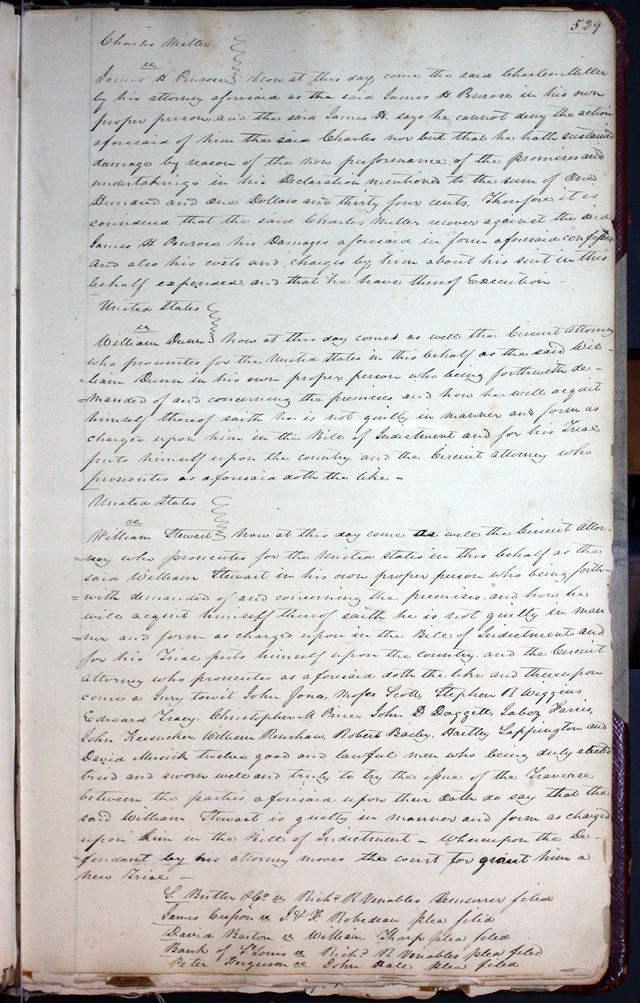 529
Charles Miller
vs
James H Penrose Now at this day come the said Charles Miller
by his attorney aforesaid as the said James H Penrose in his own
proper person and the said James H. says he cannot deny the action
aforesaid of him the said Charles nor but that he hath sustained
damage by reason of the non performance of the promises and
undertakings in his Declaration mentioned to the sum of One
Hundred and One Dollars and thirty four cents. Therefore it is
considered that the said Charles Miller recover against the said
James H Penrose his Damages aforesaid in form aforesaid confessed
and also his costs and charges by him about his suit in this
behalf expended and that he have thereof Execution –
United States
vs
William Dunn Now at this day comes as well the Circuit Attorney
who prosecutes for the United States in this behalf as the said Wil-
=liam Dunn in his own proper person who being forthwith de-
=manded of and concerning the premises and how he will acquit
himself thereof saith he is not guilty in manner and form as
charged upon him in the Bill of Indictment and for his Trial
puts himself upon the country and the Circuit Attorney who
prosecutes as aforesaid doth the like –
United States
vs
William Stewart Now at this day come as well the Circuit Attor-
=ney who prosecutes for the United States in this behalf as the
said William Stewart in his own proper person who being forth-
=with demanded of and concerning the premises, and how he
will acquit himself thereof saith he is not guilty in man
=ner and form as charged upon in the Bill of Indictment and
for his Trial puts himself upon the country and the Circuit
Attorney who prosecutes as aforesaid doth the like and thereupon
come a Jury towit John Jones, Moses Scott, Stephen R Wiggins
Edward Tracy, Christopher M Price, John D Daggett, Jabez Harris,
John William Renshaw, Robert Bailey, Hartley Lappington and
David Musick twelve good and lawful men who being duly elected
tried and sworn well and truly to try the issue of the Traverse
between the parties aforesaid upon their Oath do say that the
said William Stewart is guilty in manner and form as charged
upon him in the Bill of Indictment – Whereupon the De-
=fendant by his attorney moves the court for grant him a
new Trial –
S. Butler & Co. vs Richd. R Venables Demurrer filed
James vs J & F. Robedeau plea filed
David Barton vs William Tharp plea filed
Bank of St Louis vs Richd. R Venables plea filed
Peter Ferguson vs John Hall plea filed